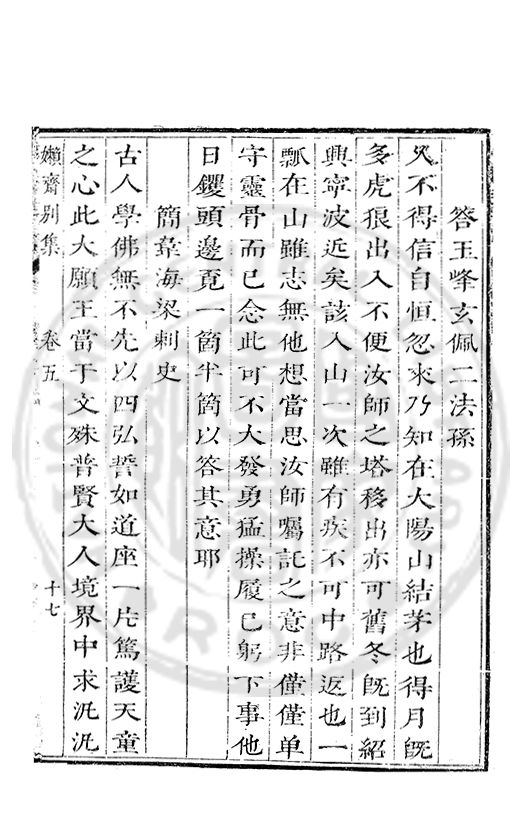 答玉峰玄佩二法孫
久不得信自恒忽來乃知在大陽山結茅也得月旣
多虎狼出入不便汝師之塔移出亦可舊冬旣到紹
興寧波近矣該入山一次雖有疾不可中路返也一
瓢在山雖志無他想當思汝師囑託之意非僅僅单
守靈骨而已念此可不大發勇猛操履己躬下事他
日钁頭邊覔一箇半箇以答其意耶
簡韋海梁刺史
古人學佛無不先以四弘誓如道座一片篤護天童
之心此大願王當于文殊普賢大人境界中求汎汎
嬾齋別集
卷五
十七